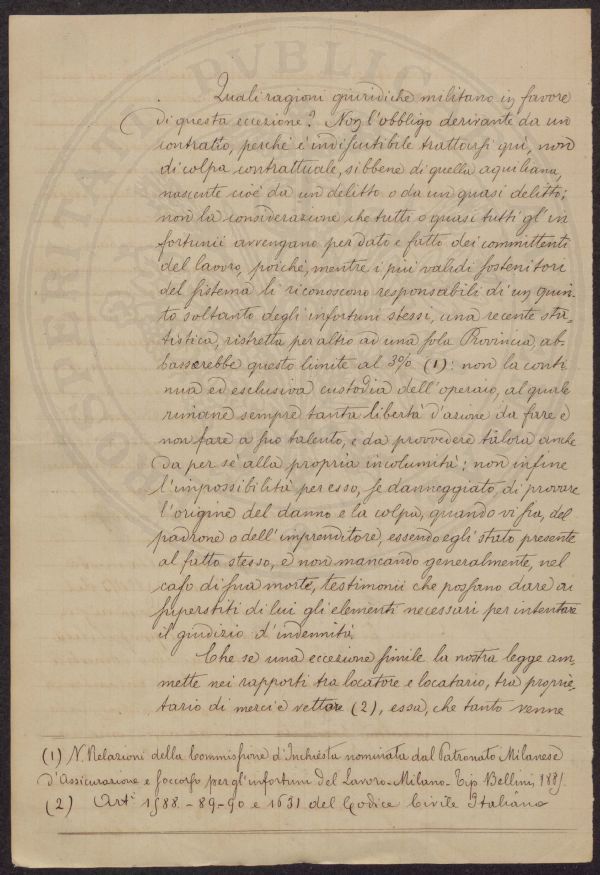 Quali ragioni giuridiche militano in favore
di questa eccezione? Non l'obbligo derivante da un
contratto, perchè è indiscutibile trattarsi quì, non
di colpa contrattuale, sibbene di quella aquiliana,
nascente cioè da un delitto o da un quasi delitto;
non la considerazione che tutti o quasi tutti gl'in
fortunii avvengano per dato e fatto dei committenti
del lavoro, poichè, mentre i più validi sostenitori
del sistema li riconoscono responsabili di un quin-
to soltanto degli infortuni stessi, una recente sta-
tistica, ristretta per altro ad una sola Provincia, ab-
basserebbe questo limite al 3% (1): non la conti
nua ed esclusiva custodia dell'operaio, al quale
rimane sempre tanta libertà d'azione da fare e
non fare a suo talento, e da provvedere talora anche
da per sè alla propria incolumità: non infine
l'impossibilità per esso, se danneggiato, di provare
l'origine del danno e la colpa, quando vi sia, del
padrone o dell'imprenditore, essendo egli stato presente
al fatto stesso, e non mancando generalmente, nel
caso di sua morte, testimonii che possano dare ai
superstiti di lui gli elementi necessari per intentare
il giudizio d'indennità.
Che se una eccezione simile la nostra legge am-
mette nei rapporti tra locatore e locatario, tra proprie-
tario di merci e vettore (2), essa, che tanto venne
(1) V. Relazioni della Commissione d'Inchiesta nominata dal Patronato Milanese
d'Assicurazione e soccorso per gl'infortuni del Lavoro - Milano - Tip Bellini, 1885.
(2) Art.i 1588 - 89 - 90 e 1631 del Codice Civile Italiano